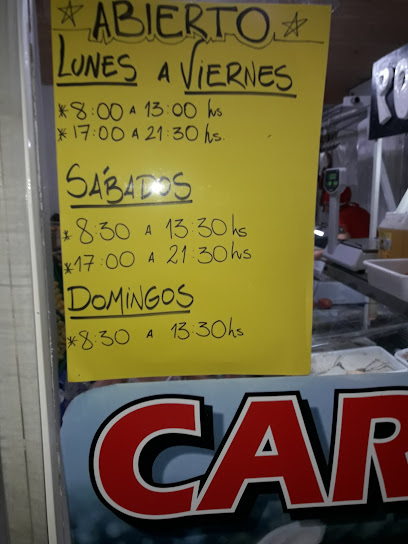 ABIERTO
LUNES A VIERNES
*8:00 A 13:00 hs
*17:00 A 21:30 hs.
SÁBADOS
*8:30 A 13:30 hs
*17:00 A 21:30 hs
DOMINGOS
*8:30 A 13:30 hs
CAR